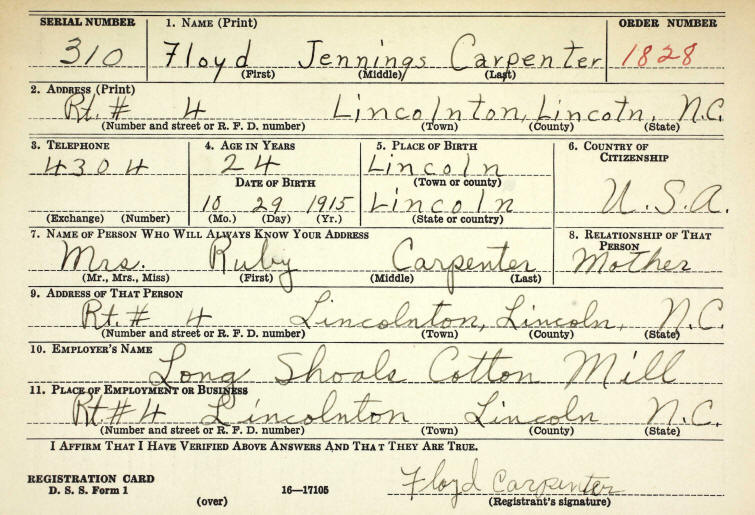 SERIAL NUMBER 1. NAME (Print) ORDER NUMBER
310 Floyd Jennings Carpenter 1828
(First) (Middle) (Last)
2. ADDRESS (Print)
Rt. # 4 Lincolnton, Lincoln, N.C.
(Number and street or R. F. D. number) (Town) (County) (State)
3. TELEPHONE 4. AGE IN YEARS 5. PLACE OF BIRTH 6. COUNTRY OF CITIZENSHIP
4304 24 Lincoln
DATE OF BIRTH (Town or county)
10 29 1915 Lincoln U.S.A.
(Exchange) (Number) (Mo.) (Day) (Yr.) (State or country)
7. NAME OF PERSON WHO WILL ALWAYS KNOW YOUR ADDRESS 8. RELATIONSHIP OF THAT PERSON
Mrs. Ruby Carpenter Mother
(Mr., Mrs., Miss) (First) (Middle) (Last)
9. ADDRESS OF THAT PERSON
Rt. # 4 Lincolnton, Lincoln, N.C.
(Number and street or R. F. D. number) (Town) (County) (State)
10. EMPLOYER'S NAME
Long Shoals Cotton Mill
11. PLACE OF EMPLOYMENT OR BUSINESS
Rt # 4 Lincolnton Lincoln N.C.
(Number and street or R. F. D. number) (Town) (County) (State)
I AFFIRM THAT I HAVE VERIFIED ABOVE ANSWERS AND THAT THEY ARE TRUE.
REGISTRATION CARD Floyd Carpenter
D. S. S. Form 1 (over) 16—17105 (Registrant's signature)